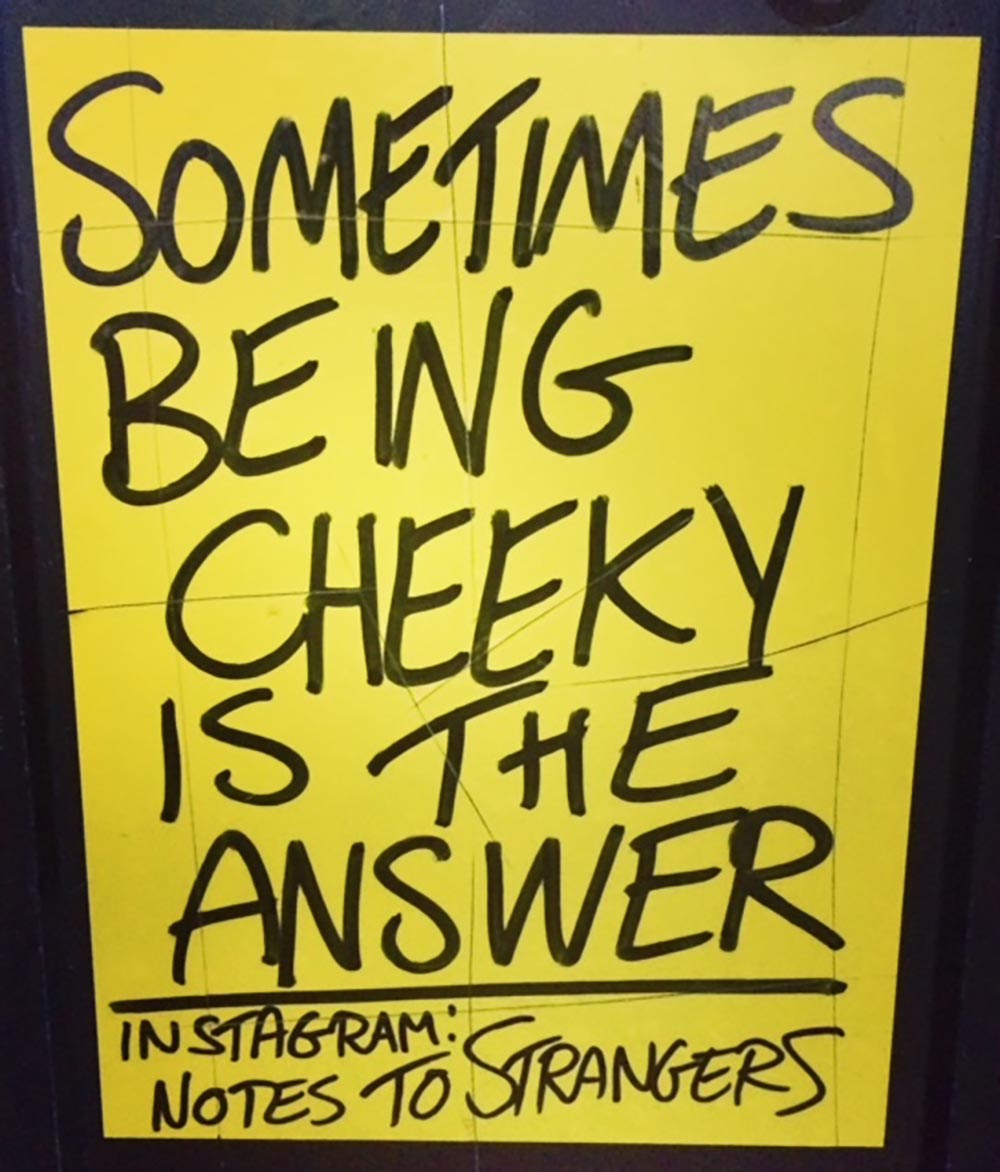 SOMETIMES
BEING
CHEEKY
IS THE
ANSWER
INSTAGRAM:
NOTES TO STRANGERS